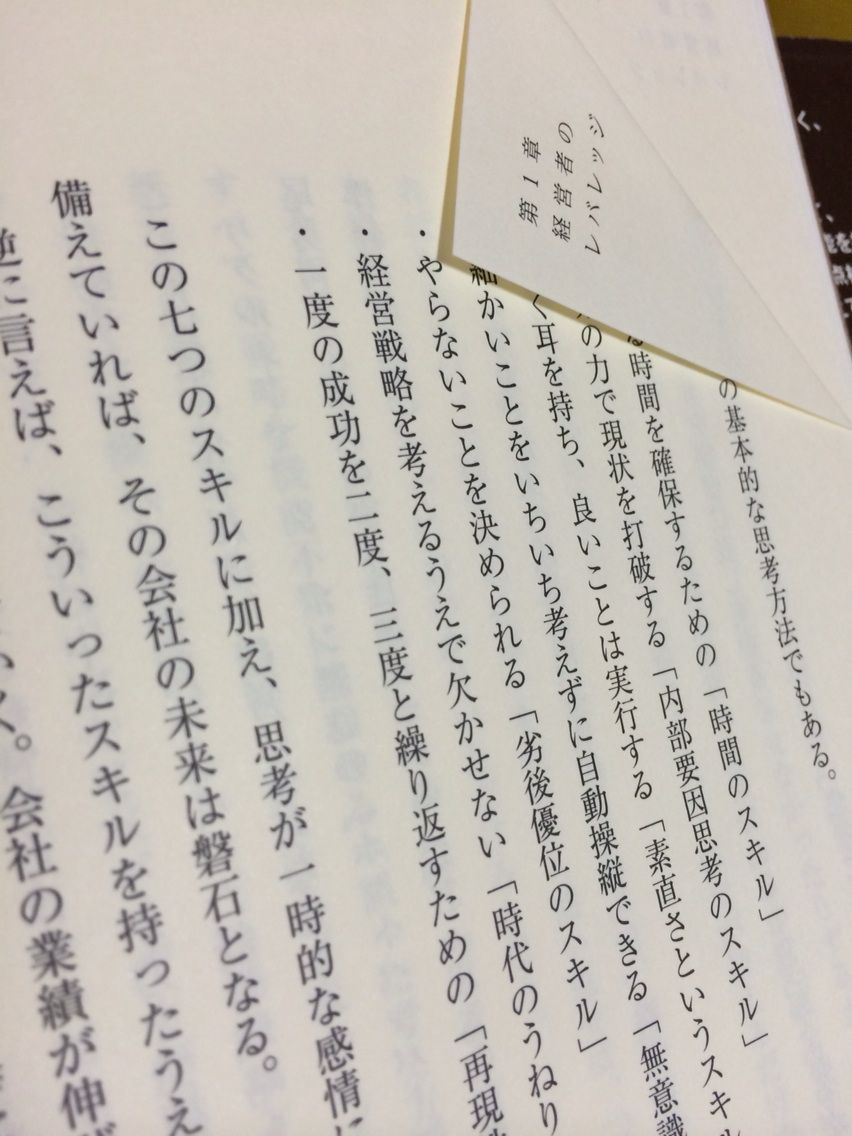 第1章
経営者の
レバレッジ
の基本的な思考方法でもある。
る時間を確保するための「時間のスキル」
の力で現状を打破する「内部要因思考のスキル」
く耳を持ち、良いことは実行する「素直さというスキ
細かいことをいちいち考えずに自動操縦できる「無意識
・やらないことを決められる「劣後優位のスキル」
・経営戦略を考えるうえで欠かせない「時代のうねり
・一度の成功を二度、三度と繰り返すための「再現
この七つのスキルに加え、思考が一時的な感情に
備えていれば、その会社の未来は磐石となる。
逆に言えば、こういったスキルを持ったうえ
いく。会社の業績が伸び